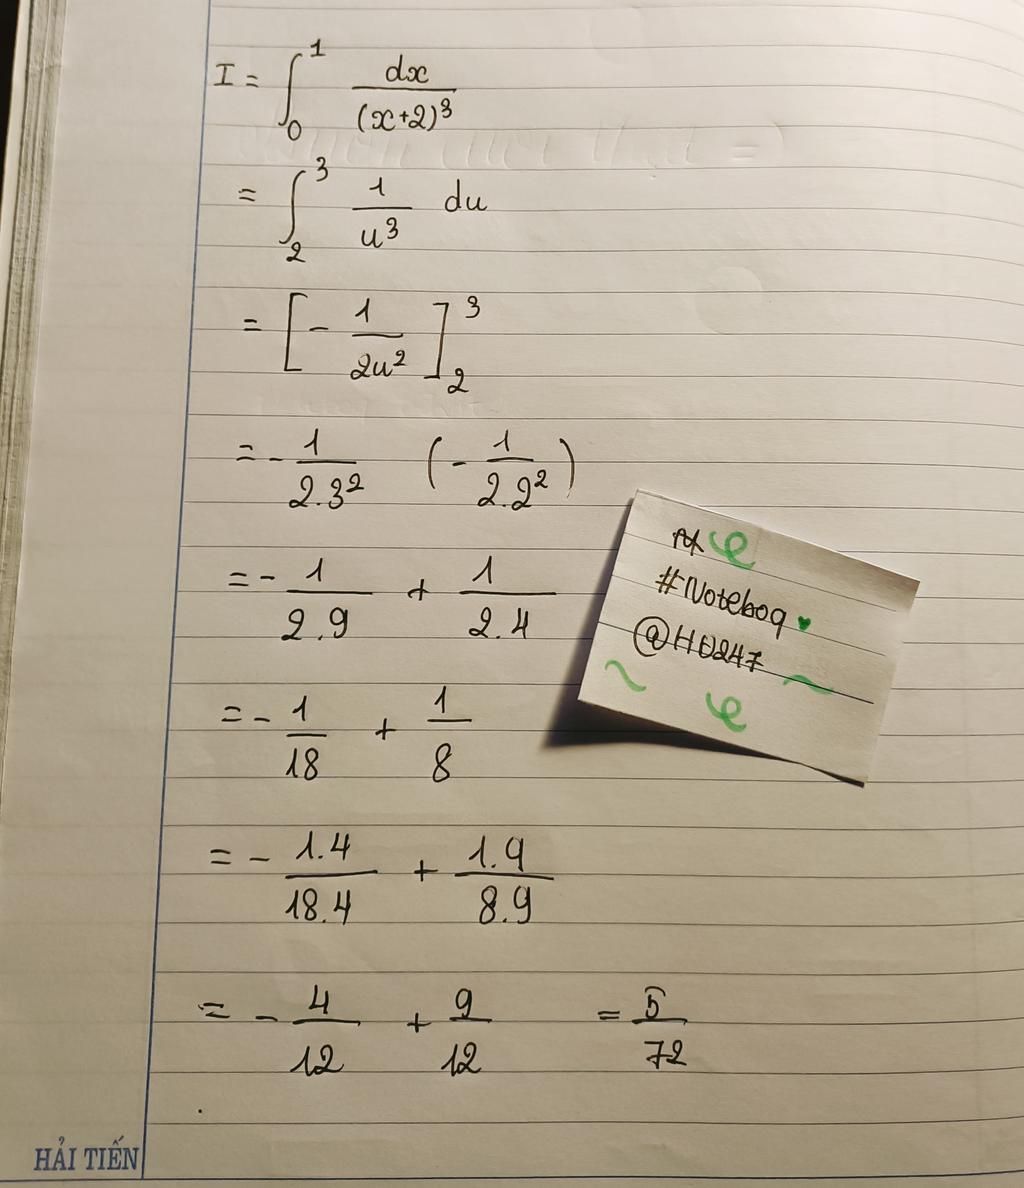 I = ∫₀¹ dx/(x+2)³
= ∫₂³ 1/u³ du
= [-1/2u²]₂³
= -1/2.3² (-1/2.2²)
= -1/2.9 + 1/2.4
= -1/18 + 1/8
= -1.4/18.4 + 1.9/8.9
= -4/12 + 9/12 = 5/72
#Noteboq
@HD247
HẢI TIẾN